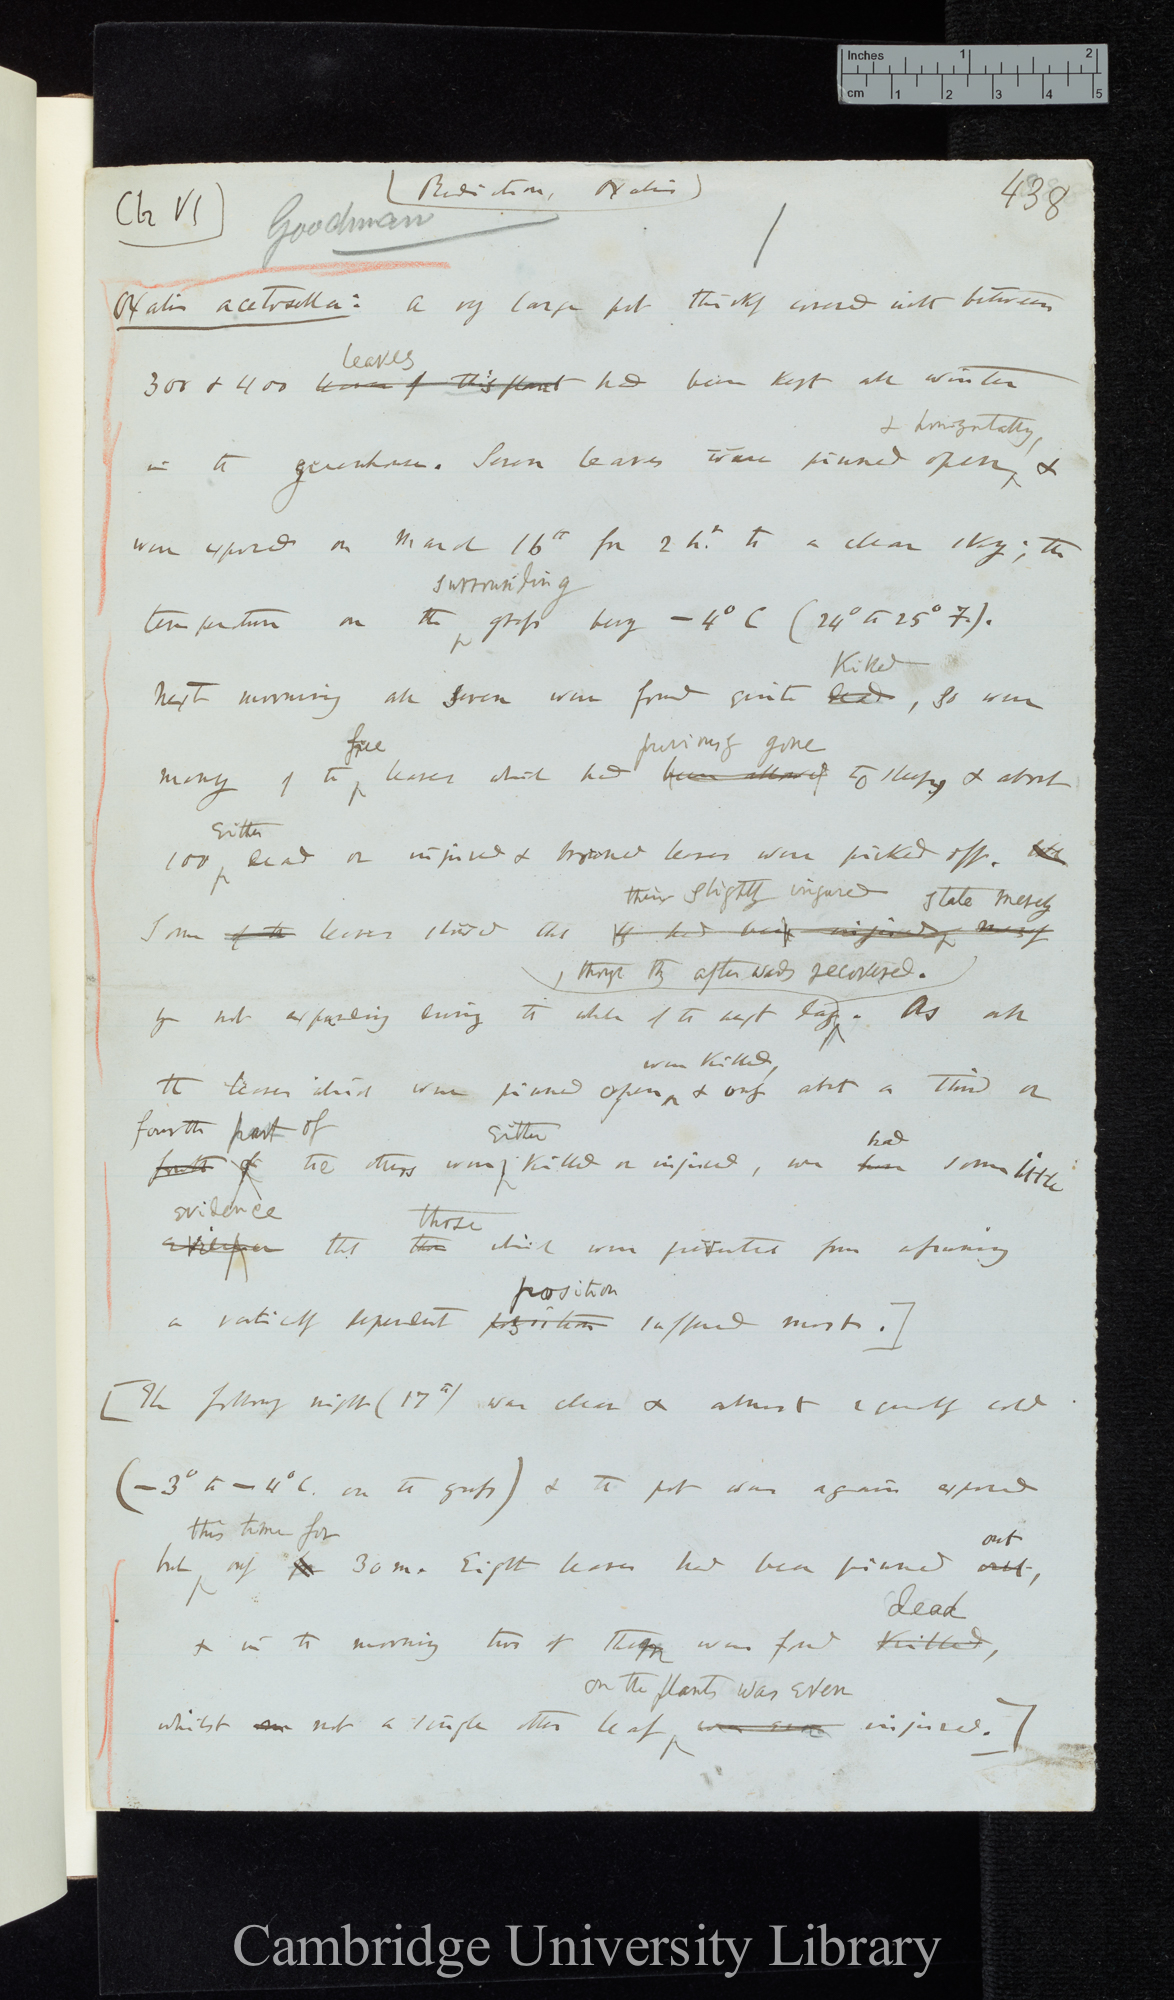 Inches 1 2
cm 1 2 3 4 5
Ch VI
(Radiation, Oxalis)
438
Goodman
Oxalis acetosella: A vy large pot thickly covered with between
leaves
300 & 400 leaves of this plant had been kept all winter
& horizontally,
in the greenhouse. Seven leaves were pinned open, &
were exposed on March 16th for 2 h. to a clear sky; the
surrounding
temperature on the grass being -4° C (24° to 25° F.).
killed
Next morning all seven were found quite dead, so were
free
previously gone
many of the leaves which had been allowed to sleep, & about
Either
100 dead or injured & browned leaves were picked off.
their slightly injured state merely
Some of the leaves showed that they had been injured, merely
, though they afterwards recovered.
by not expanding during the whole of the next day. As all
were killed,
the leaves which were pinned open & only about a third or
fourth part of
either
had
fourth of the others were killed or injured, we have some little
evidence
those
evidence that those which were prevented from assuming
position
a vertically dependent position suffered most.]
[The following night (17th) was clear & almost equally cold
(-3° to -4° C. on the grass) & the pot was again exposed
this time for
out
but only for 30 m. Eight leaves had been pinned out,
dead
& in the morning two of them were found killed,
on the plants was even
whilst not a single other leaf was even injured.]
Cambridge University Library